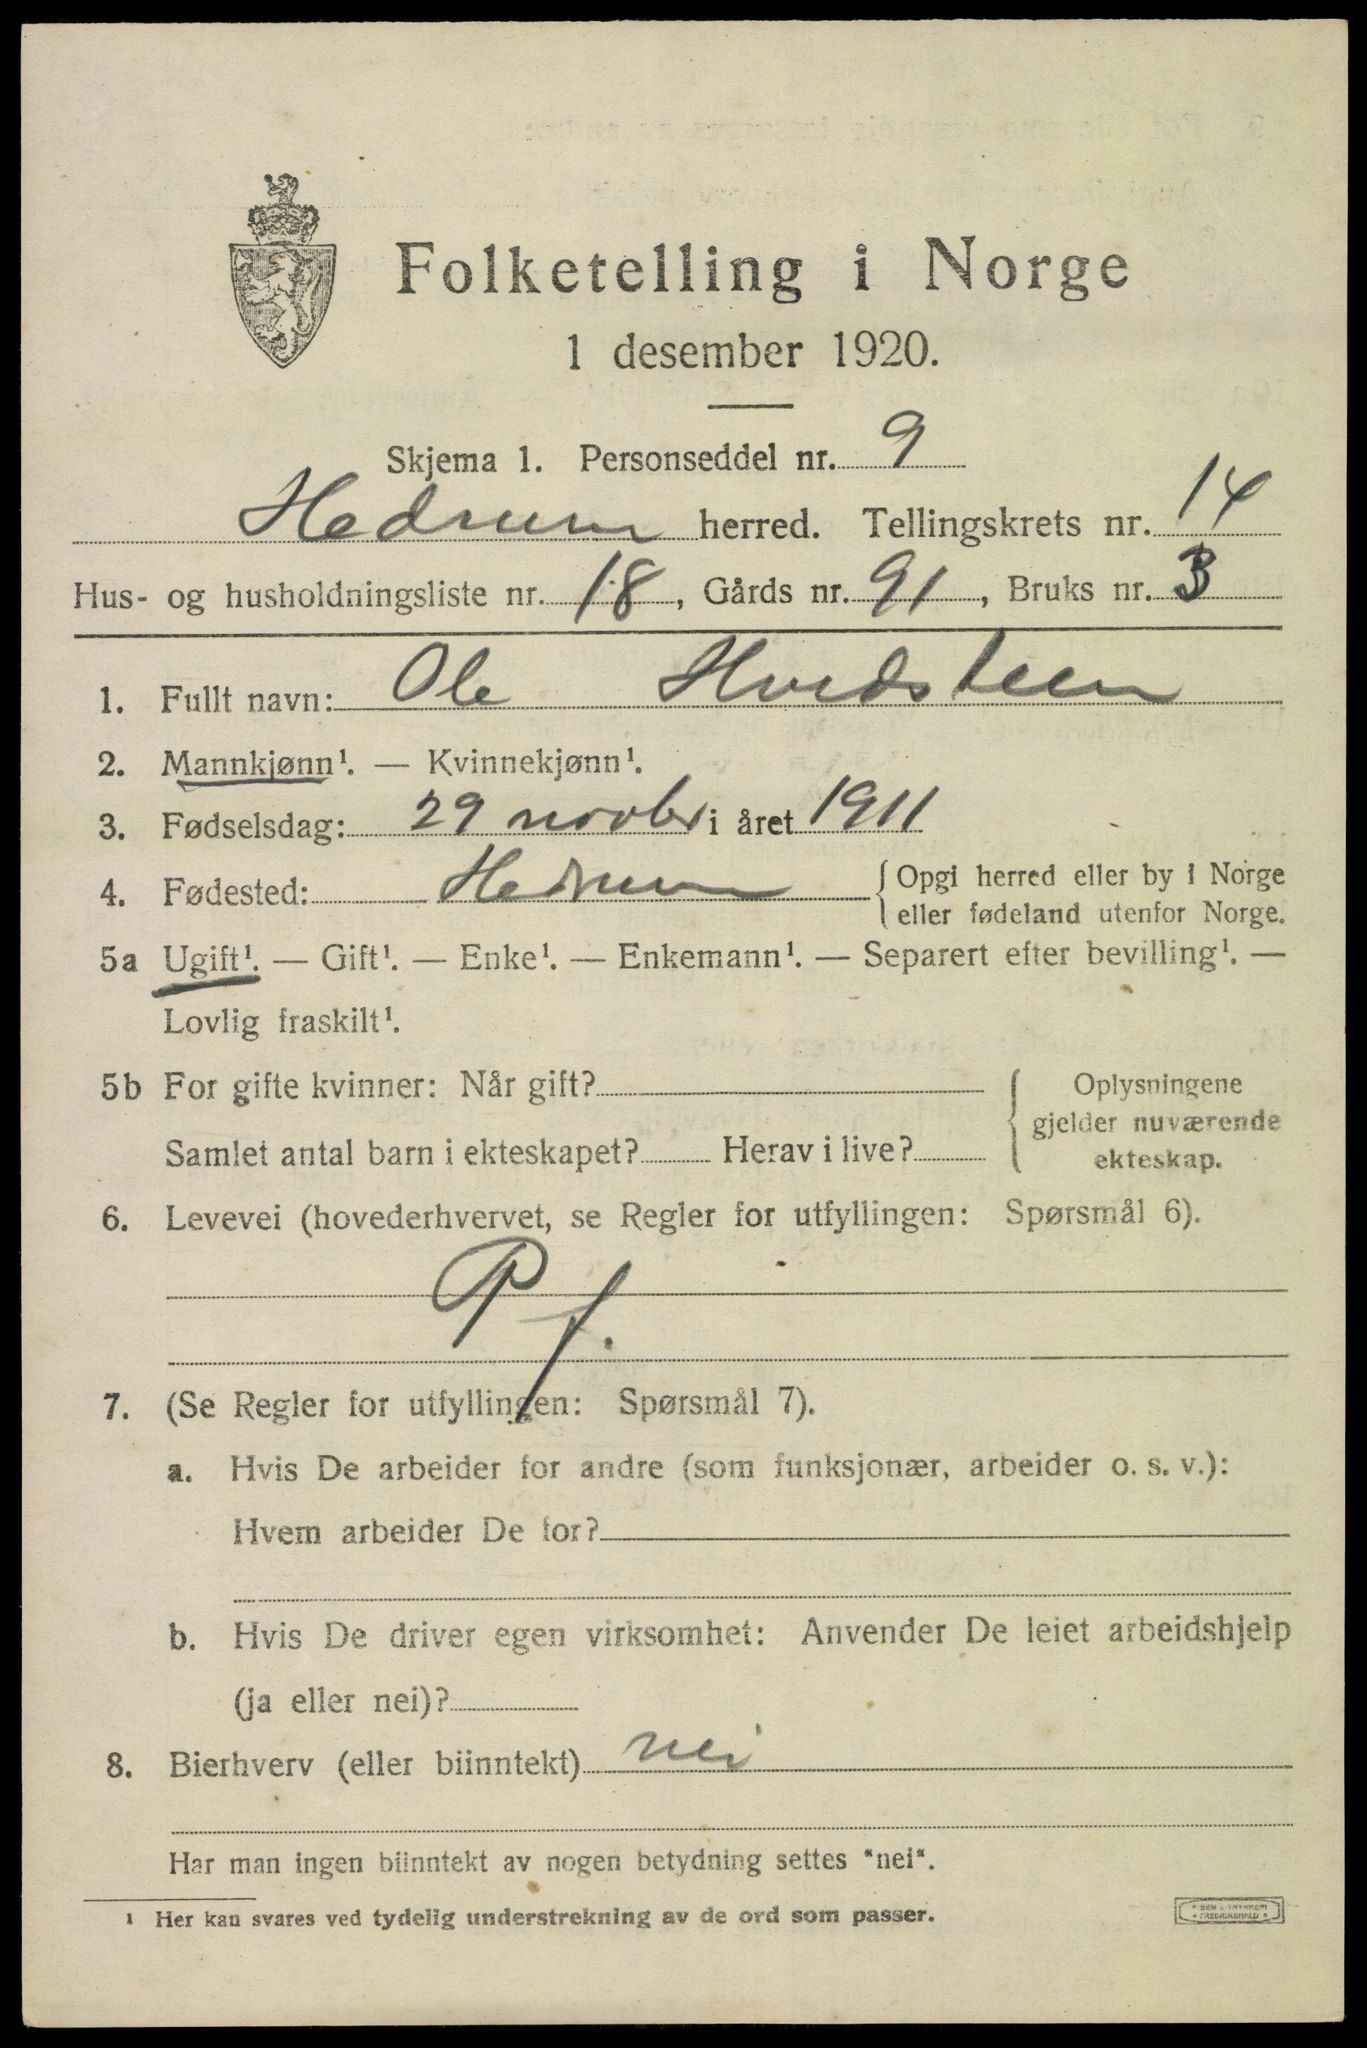 Folketelling i Norge
1 desember 1920.
Skjema 1. Personseddel nr. 9
Hedrum herred. Tellingskrets nr. 14
Hus- og husholdningsliste nr. 18, Gårds nr. 91, Bruks nr. 3
1. Fullt navn: Ole Hvidsteen
2. Mannkjønn¹. — Kvinnekjønn¹.
3. Fødselsdag: 29 novbr i året 1911
4. Fødested: Hedrum { Opgi herred eller by i Norge
eller fødeland utenfor Norge.
5a Ugift¹. — Gift¹. — Enke¹. — Enkemann¹. — Separert efter bevilling¹. —
Lovlig fraskilt¹.
5b For gifte kvinner: Når gift? { Oplysningene
gjelder nuværende
Samlet antal barn i ekteskapet? Herav i live? ekteskap.
6. Levevei (hovederhvervet, se Regler for utfyllingen: Spørsmål 6).
P f.
7. (Se Regler for utfyllingen: Spørsmål 7).
a. Hvis De arbeider for andre (som funksjonær, arbeider o. s. v.):
Hvem arbeider De for?
b. Hvis De driver egen virksomhet: Anvender De leiet arbeidshjelp
(ja eller nei)?
8. Bierhverv (eller biinntekt) nei
Har man ingen biinntekt av nogen betydning settes "nei".
¹ Her kan svares ved tydelig understrekning av de ord som passer.
FREDRIKSHALD